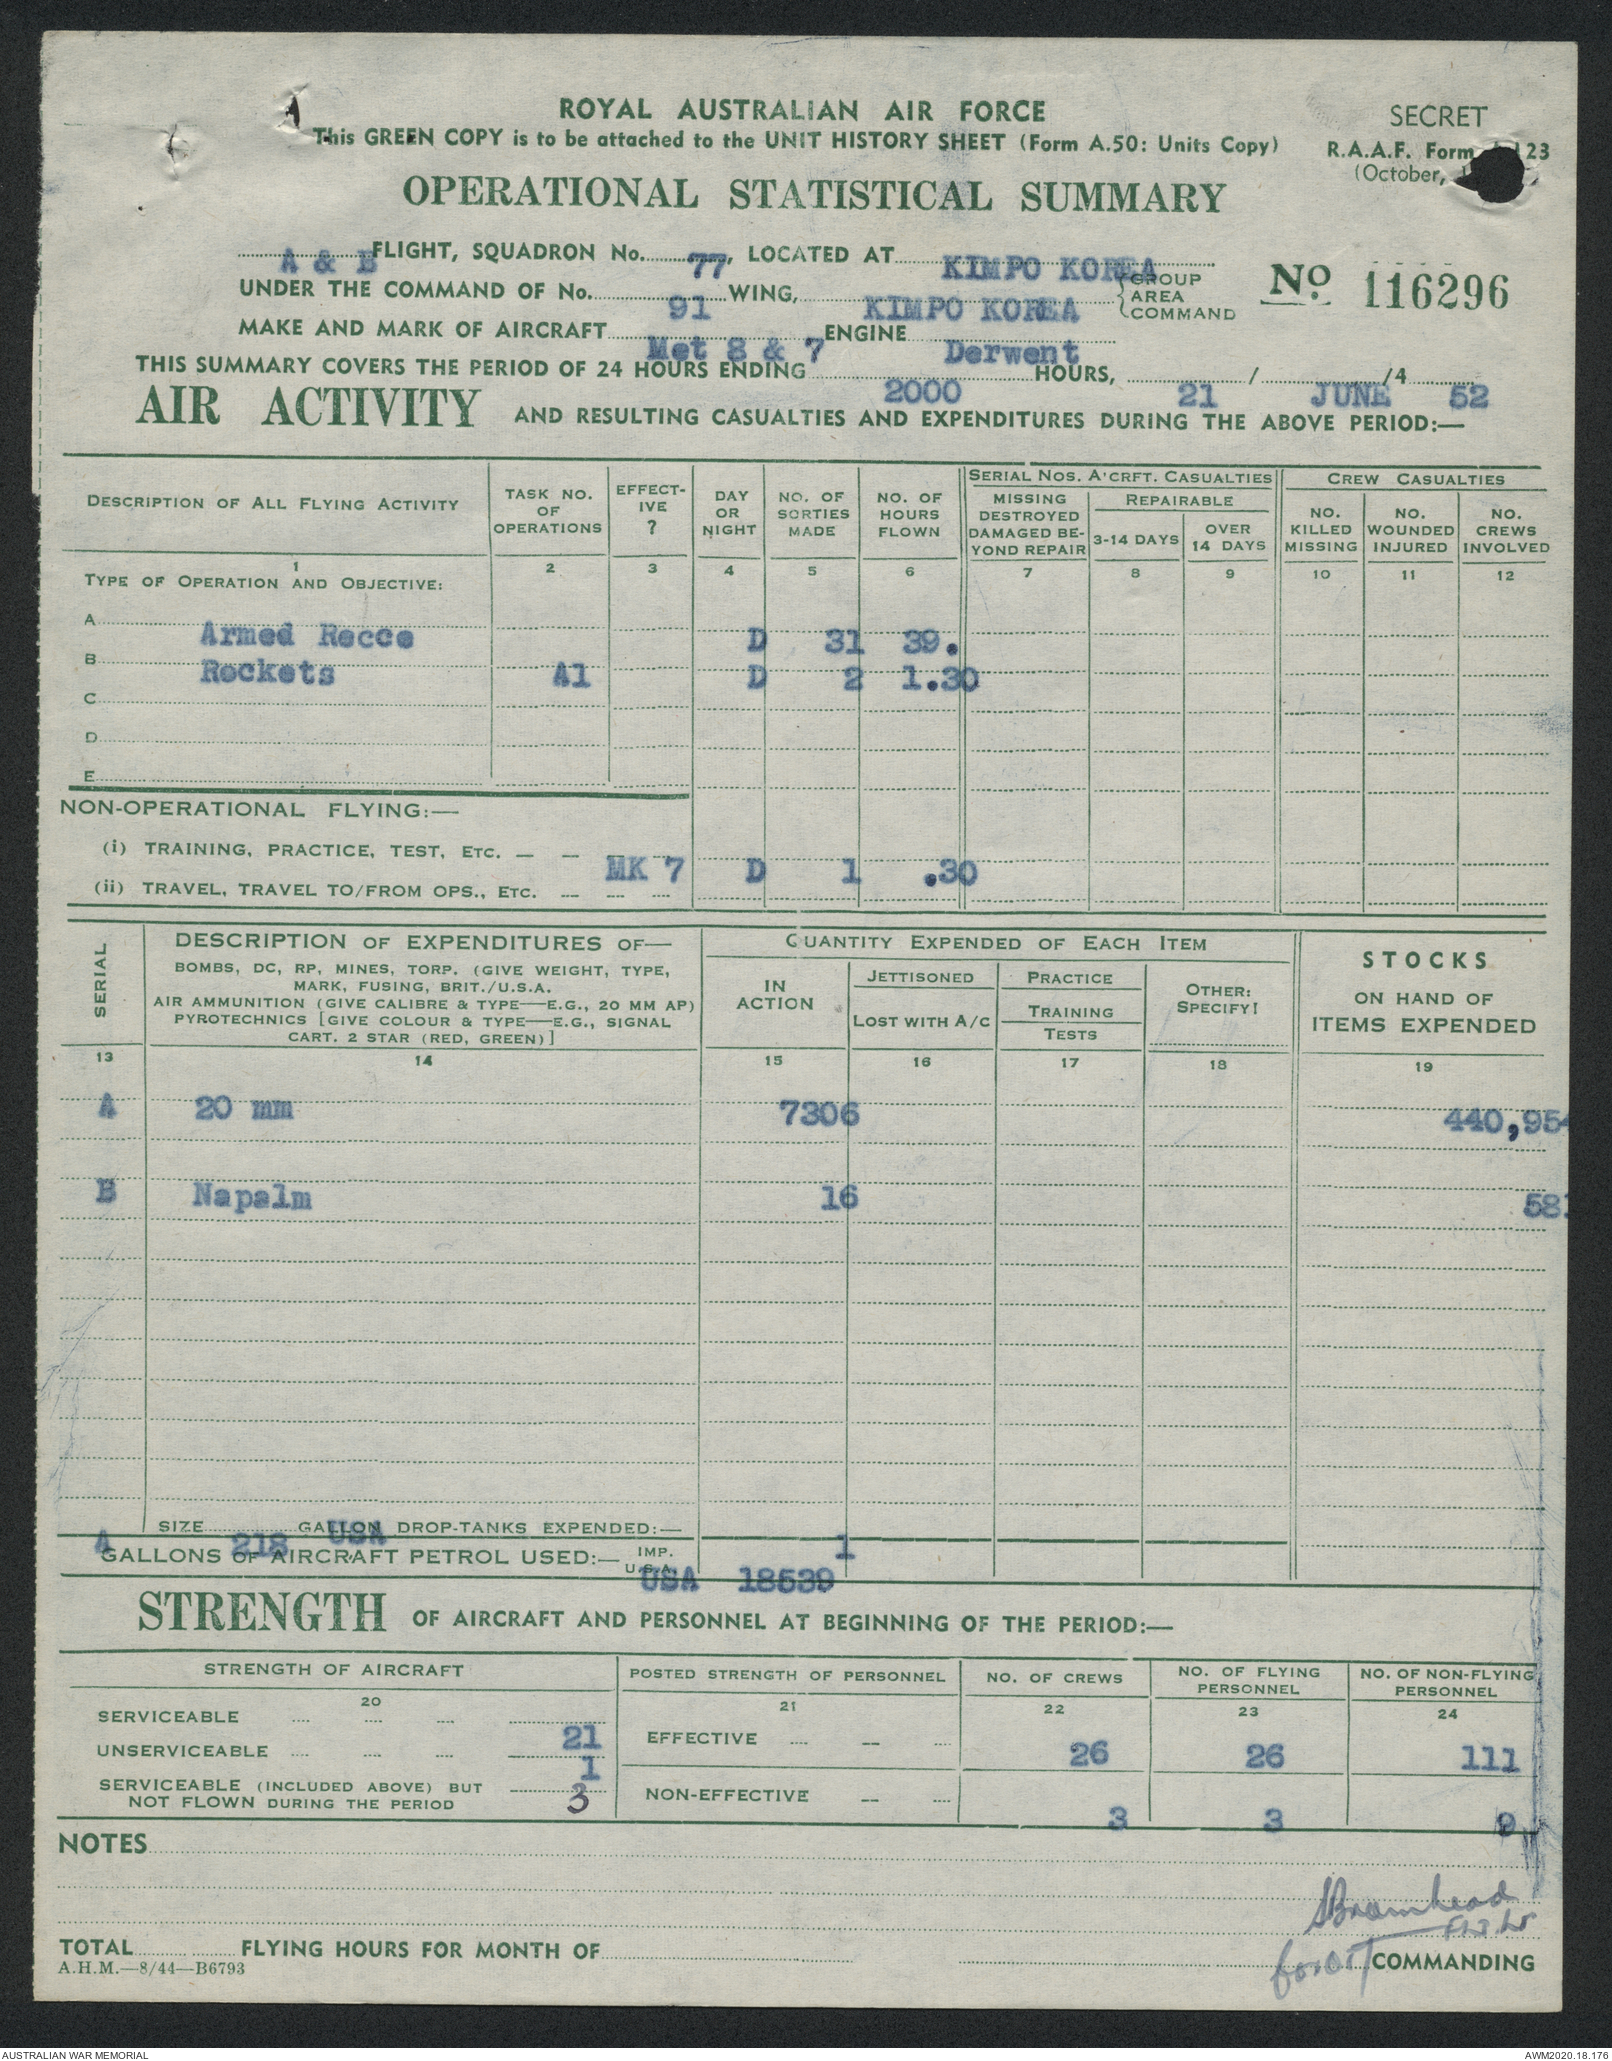 ROYAL AUSTRALIAN AIR FORCE
This GREEN COPY is to be attached to the UNIT HISTORY SHEET (Form A.50: Units Copy)
SECRET
R.A.A.F. Form 23
(October,
OPERATIONAL STATISTICAL SUMMARY
A & B FLIGHT, SQUADRON No. 77, LOCATED AT KIMPO KOREA
UNDER THE COMMAND OF No. 91 WING, KIMPO KOREA GROUP AREA COMMAND
No. 116296
MAKE AND MARK OF AIRCRAFT Met 8 & 7 ENGINE Derwent
THIS SUMMARY COVERS THE PERIOD OF 24 HOURS ENDING 2000 HOURS, 21 / JUNE /4 52
AIR ACTIVITY AND RESULTING CASUALTIES AND EXPENDITURES DURING THE ABOVE PERIOD:—
DESCRIPTION OF ALL FLYING ACTIVITY
TASK NO. OF OPERATIONS
EFFECTIVE ?
DAY OR NIGHT
NO. OF SORTIES MADE
NO. OF HOURS FLOWN
SERIAL NOS. A'CRFT. CASUALTIES
MISSING DESTROYED DAMAGED BEYOND REPAIR
REPAIRABLE
3-14 DAYS
OVER 14 DAYS
CREW CASUALTIES
NO. KILLED MISSING
NO. WOUNDED INJURED
NO. CREWS INVOLVED
1 2 3 4 5 6 7 8 9 10 11 12
TYPE OF OPERATION AND OBJECTIVE:
A Armed Recce D 31 39.
B Rockets A1 D 2 1.30
C
D
E
NON-OPERATIONAL FLYING:—
(i) TRAINING, PRACTICE, TEST, ETC. — — MK 7 D 1 .30
(ii) TRAVEL, TRAVEL TO/FROM OPS., ETC. — ... ...
SERIAL
DESCRIPTION OF EXPENDITURES OF—
BOMBS, DC, RP, MINES, TORP. (GIVE WEIGHT, TYPE,
MARK, FUSING, BRIT./U.S.A.
AIR AMMUNITION (GIVE CALIBRE & TYPE—E.G., 20 MM AP)
PYROTECHNICS [GIVE COLOUR & TYPE—E.G., SIGNAL
CART. 2 STAR (RED, GREEN)]
QUANTITY EXPENDED OF EACH ITEM
IN ACTION
JETTISONED
LOST WITH A/C
PRACTICE
TRAINING
TESTS
OTHER: SPECIFY!
STOCKS
ON HAND OF
ITEMS EXPENDED
13 14 15 16 17 18 19
A 20 mm 7306 440,954
B Napalm 16 58
A SIZE 218 GALLON USA DROP-TANKS EXPENDED:— 1
GALLONS OF AIRCRAFT PETROL USED:— IMP. U.S.A. USA 18539
STRENGTH OF AIRCRAFT AND PERSONNEL AT BEGINNING OF THE PERIOD:—
STRENGTH OF AIRCRAFT
POSTED STRENGTH OF PERSONNEL
NO. OF CREWS
NO. OF FLYING PERSONNEL
NO. OF NON-FLYING PERSONNEL
20 21 22 23 24
SERVICEABLE .... .... .... 21
UNSERVICEABLE .... .... .... 1
SERVICEABLE (INCLUDED ABOVE) BUT
NOT FLOWN DURING THE PERIOD 3
EFFECTIVE .... — .... 26 26 111
NON-EFFECTIVE — .... 3 3 9
NOTES
SBramhead
Flt. Lt
TOTAL FLYING HOURS FOR MONTH OF
for COMMANDING
A.H.M.—8/44—B6793
AUSTRALIAN WAR MEMORIAL
AWM2020.18.176